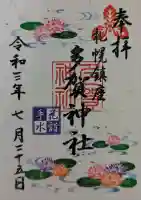 奉拝
札幌鎮座
多賀神社
令和三年七月二十五日
花詣
手水